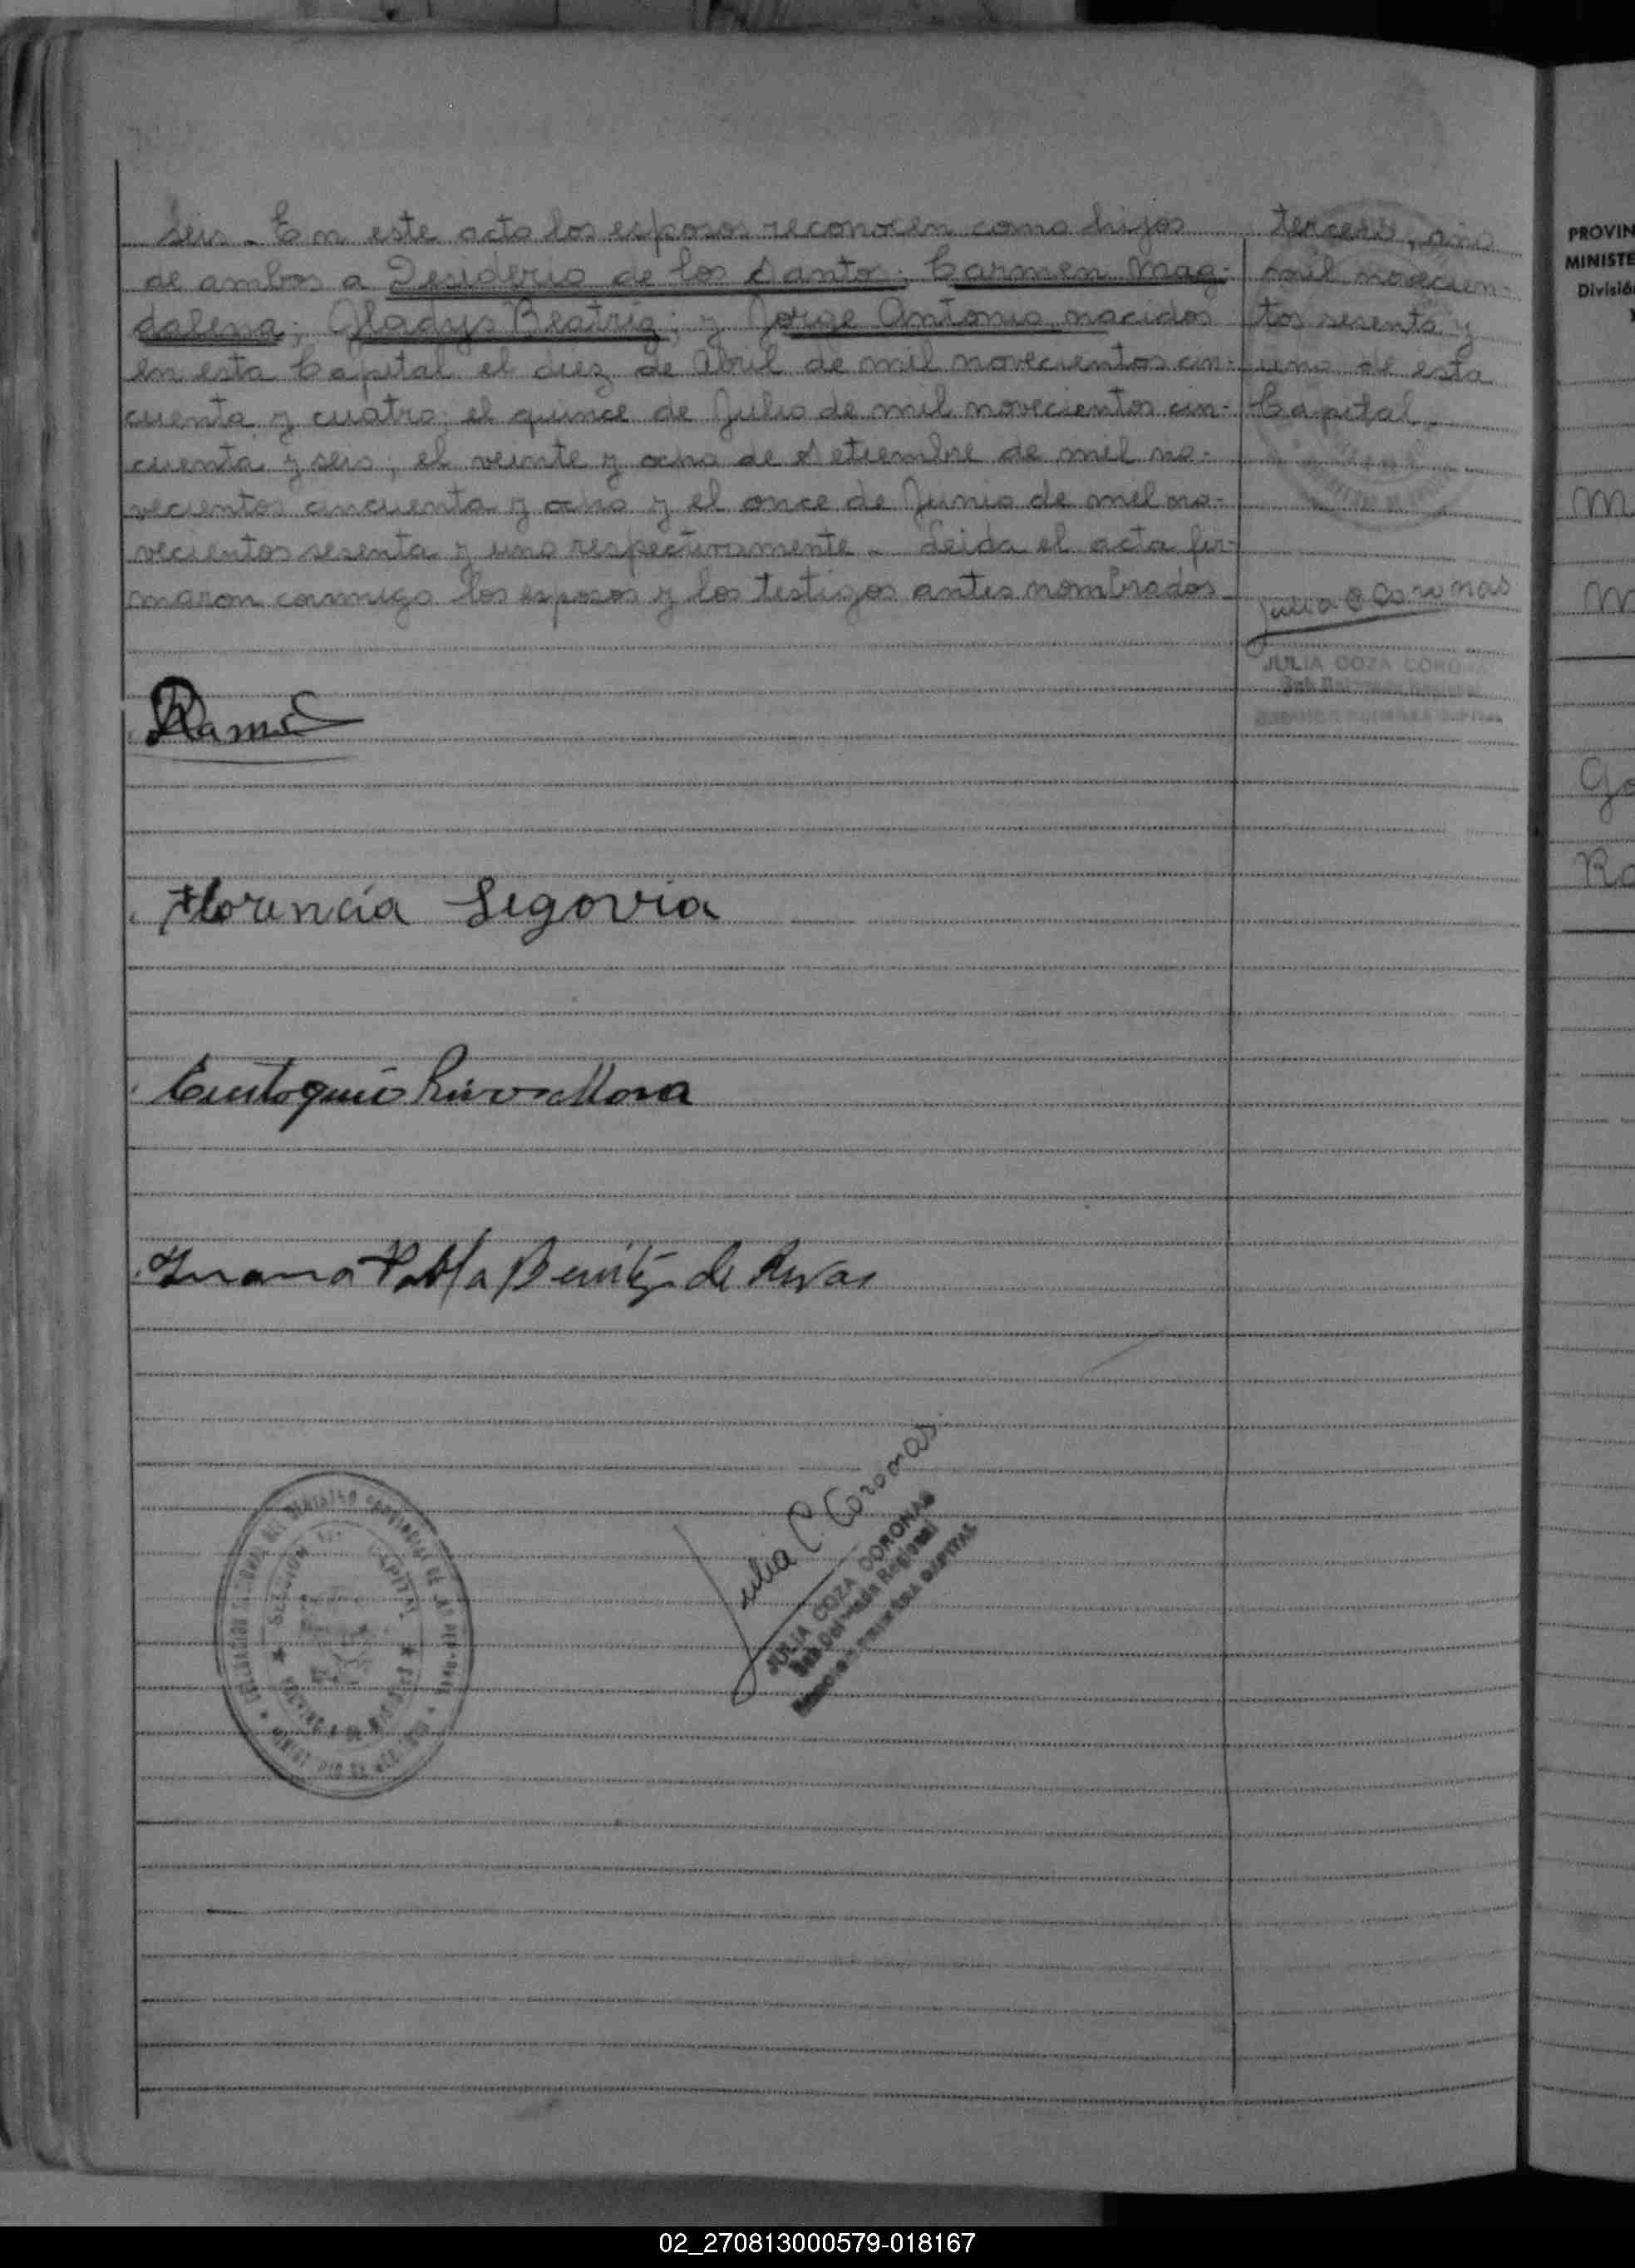 seis. En este acto los esposos reconocen como hijos
de ambos a Desiderio de los Santos; Carmen Mag-
dalena; Gladys Beatriz; y Jorge Antonio, nacidos
en esta Capital el diez de Abril de mil novecientos cin-
cuenta y cuatro; el quince de Julio de mil novecientos cin-
cuenta y seis; el veinte y ocho de Setiembre de mil no-
vecientos cincuenta y ocho y el once de Junio de mil no-
vecientos sesenta y uno respectivamente. Leida el acta fir-
maron conmigo los esposos y los testigos antes nombrados.
tercero, año
mil novecien-
tos sesenta y
uno de esta
Capital.
Julia C Coronas
JULIA COZA CORONAS
Florencia Segovia
Eustoquio Rivas Mora
Juana Pabla Benítez de Rivas
Julia C. Coronas
JULIA COZA CORONAS
Sub Delegada Regional
PRIMERA CAPITAL
SECCION
CAPITAL
PROVIN
MINISTE
División
M
M
Go
Ro
02_270813000579-018167